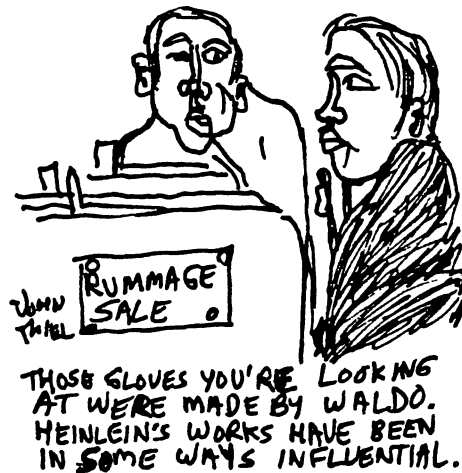 RUMMAGE
SALE
JOHN
THIEL
THOSE GLOVES YOU'RE LOOKING
AT WERE MADE BY WALDO.
HEINLEIN'S WORKS HAVE BEEN
IN SOME WAYS INFLUENTIAL.